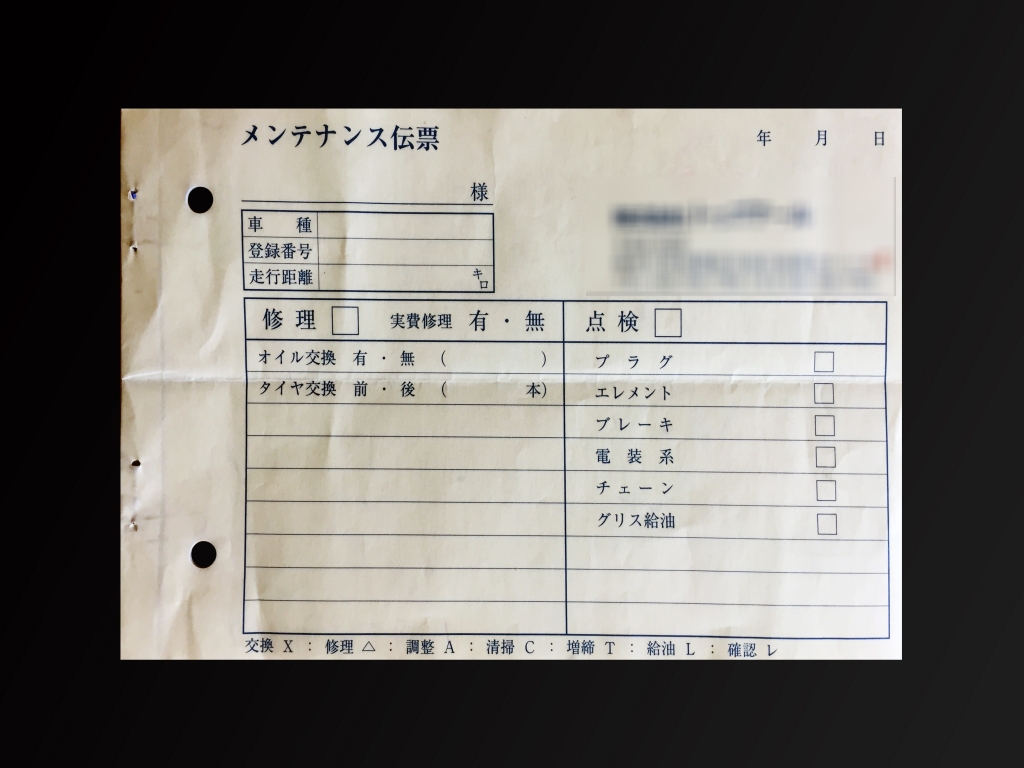 メンテナンス伝票
年 月 日
様
車 種
登録番号
走行距離 キロ
修 理 □ 実費修理 有 ・ 無
点 検 □
オイル交換 有 ・ 無 ( )
タイヤ交換 前 ・ 後 ( 本)
プ ラ グ □
エレメント □
ブ レ ー キ □
電 装 系 □
チ ェ ー ン □
グリス給油 □
交換 X : 修理 △ : 調整 A : 清掃 C : 増締 T : 給油 L : 確認 レ